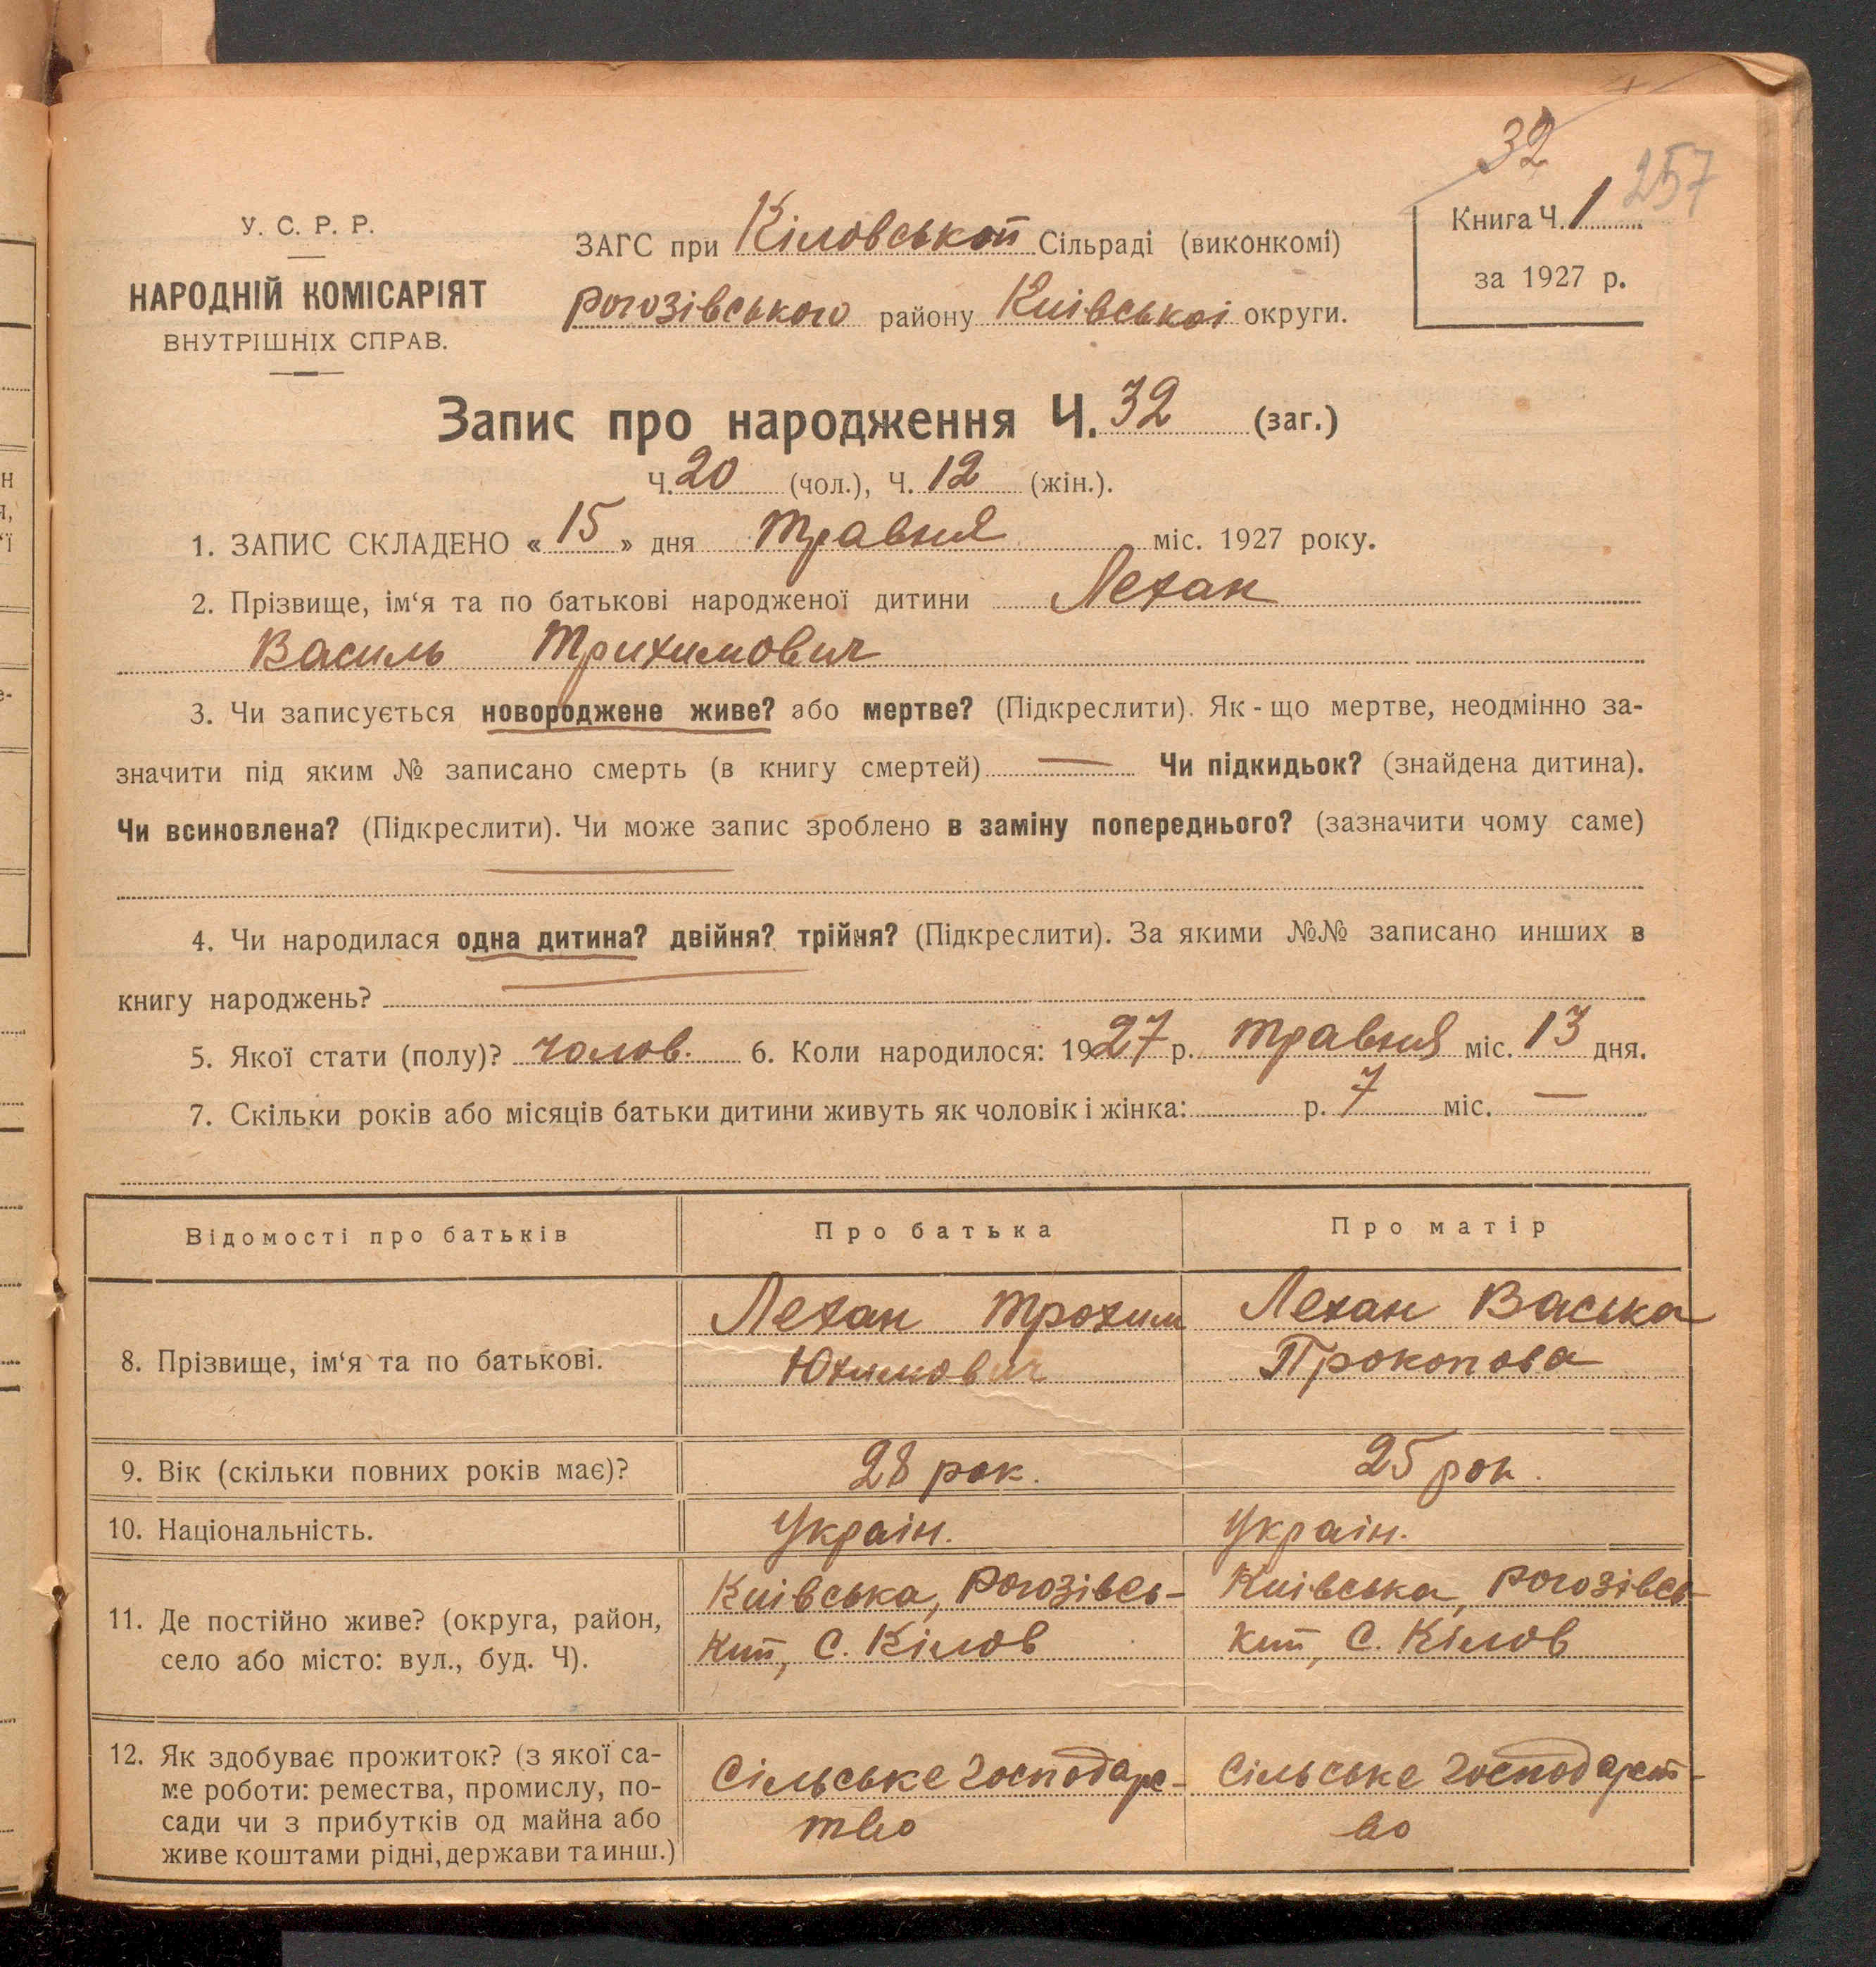 32
257
У. С. Р. Р.
НАРОДНІЙ КОМІСАРІЯТ
ВНУТРІШНІХ СПРАВ.
ЗАГС при Кіловській Сільраді (виконкомі)
Рогозівського району Київської округи.
Книга Ч. 1
за 1927 р.
Запис про народження Ч. 32 (заг.)
Ч. 20 (чол.), Ч. 12 (жін.).
1. ЗАПИС СКЛАДЕНО « 15 » дня Травня міс. 1927 року.
2. Прізвище, ім‘я та по батькові народженої дитини Лехан
Василь Трихимович
3. Чи записується новороджене живе? або мертве? (Підкреслити). Як - що мертве, неодмінно за-
значити під яким № записано смерть (в книгу смертей) — Чи підкидьок? (знайдена дитина).
Чи всиновлена? (Підкреслити). Чи може запис зроблено в заміну попереднього? (зазначити чому саме)
4. Чи народилася одна дитина? двійня? трійня? (Підкреслити). За якими №№ записано инших в
книгу народжень?
5. Якої стати (полу)? чолов. 6. Коли народилося: 1927 р. Травня міс. 13 дня.
7. Скільки років або місяців батьки дитини живуть як чоловік і жінка: р. 7 міс. —
Відомості про батьків Про батька Про матір
8. Прізвище, ім‘я та по батькові.
Лехан Трохим
Юхимович
Лехан Васька
Прокопова
9. Вік (скільки повних років має)? 28 рок. 25 рок.
10. Національність. Україн. Україн.
11. Де постійно живе? (округа, район,
село або місто: вул., буд. Ч).
Київська, Рогозівсь-
кий, С. Кілов
Київська, Рогозівсь-
кий, С. Кілов
12. Як здобуває прожиток? (з якої са-
ме роботи: ремества, промислу, по-
сади чи з прибутків од майна або
живе коштами рідні, держави та инш.)
Сільське господарс-
тво
Сільське господарст-
во